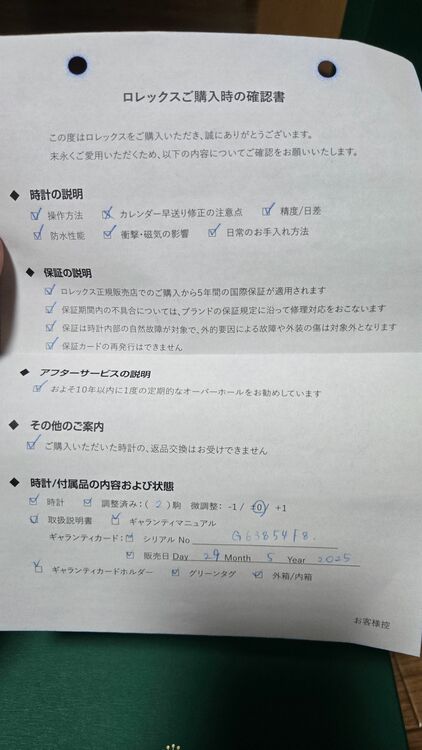 ロレックスご購入時の確認書
この度はロレックスをご購入いただき、誠にありがとうございます。
末永くご愛用いただくため、以下の内容についてご確認をお願いいたします。
◆ 時計の説明
☑ 操作方法 ☑ カレンダー早送り修正の注意点 ☑ 精度/日差
☑ 防水性能 ☑ 衝撃・磁気の影響 ☑ 日常のお手入れ方法
◆ 保証の説明
☑ ロレックス正規販売店でのご購入から5年間の国際保証が適用されます
☑ 保証期間内の不具合については、ブランドの保証規定に沿って修理対応をおこないます
☑ 保証は時計内部の自然故障が対象で、外的要因による故障や外装の傷は対象外となります
☑ 保証カードの再発行はできません
◆ アフターサービスの説明
☑ およそ10年以内に1度の定期的なオーバーホールをお勧めしています
◆ その他のご案内
☑ ご購入いただいた時計の、返品交換はお受けできません
◆ 時計/付属品の内容および状態
☑ 時計 ☑ 調整済み：( 2 ) 駒 微調整： -1 / ±0 / +1
☑ 取扱説明書 ☑ ギャランティマニュアル
ギャランティカード：☑ シリアル No G63854F8.
☑ 販売日 Day 29 Month 5 Year 2025
☑ ギャランティカードホルダー ☑ グリーンタグ ☑ 外箱/内箱
お客様控